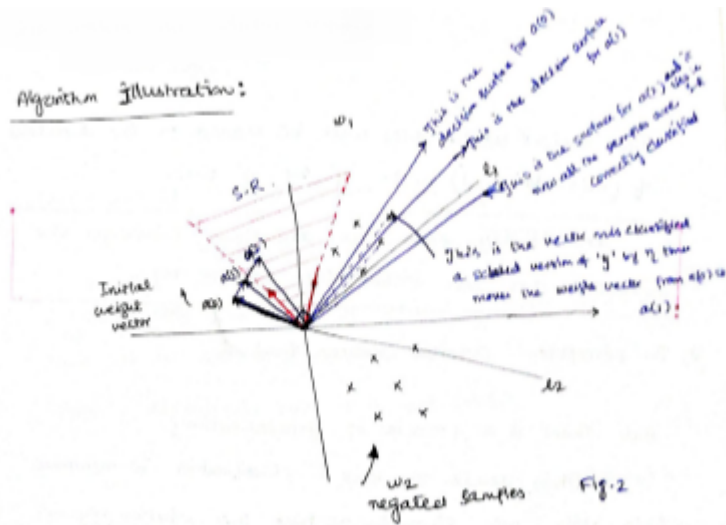 Algorithm Illustration:
w1
This is the
decision surface for a(0)
This is the decision surface
for a(1)
This is the surface for a(2) and
now all the samples are
correctly classified
S.R
l1
This is the vector misclassified
a scaled version of 'y' by η thus
moves the weight vector from a(0) to
a(1).
a(2)
a(1)
a(0)
Initial
weight
vector
l2
w2
negated samples
Fig.2